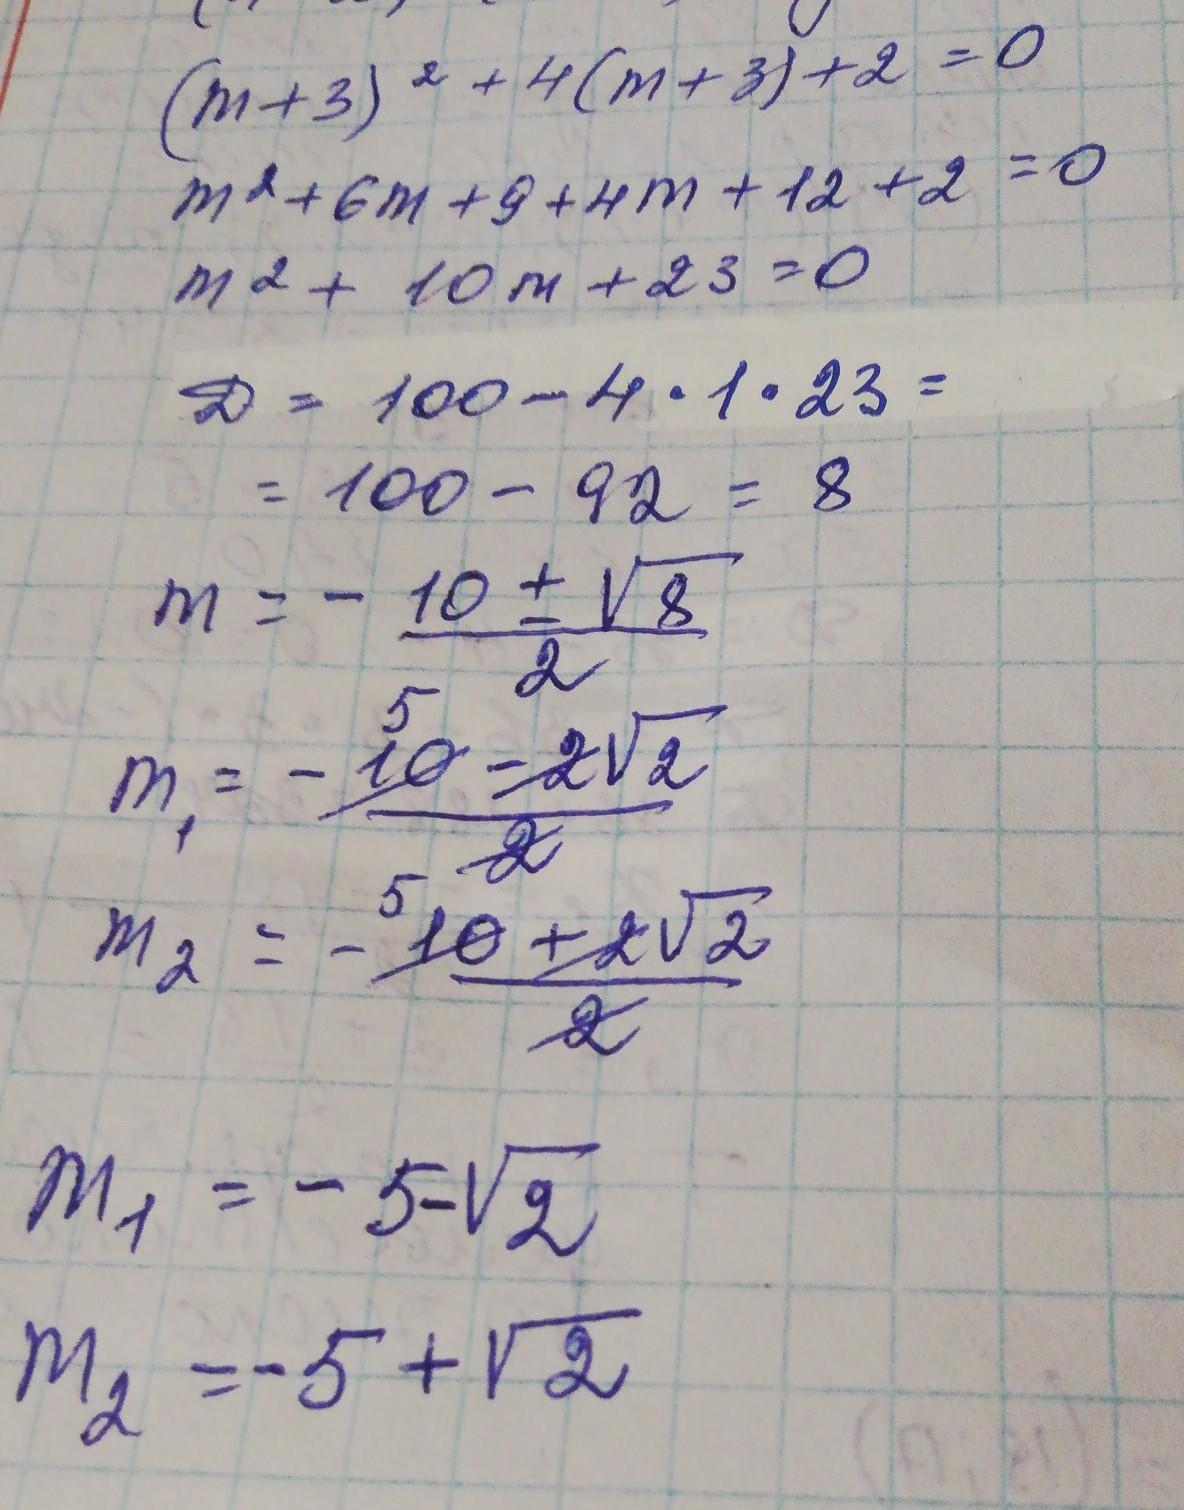 (m+3)² + 4(m+3)+2 = 0
m² + 6m + 9 + 4m + 12 + 2 = 0
m² + 10m + 23 = 0
D = 100 - 4 · 1 · 23 =
= 100 - 92 = 8
m = - 10 ± √8
2
5
m₁ = - 10 - 2√2
2
5
m₂ = - 10 + 2√2
2
m₁ = - 5 - √2
m₂ = - 5 + √2